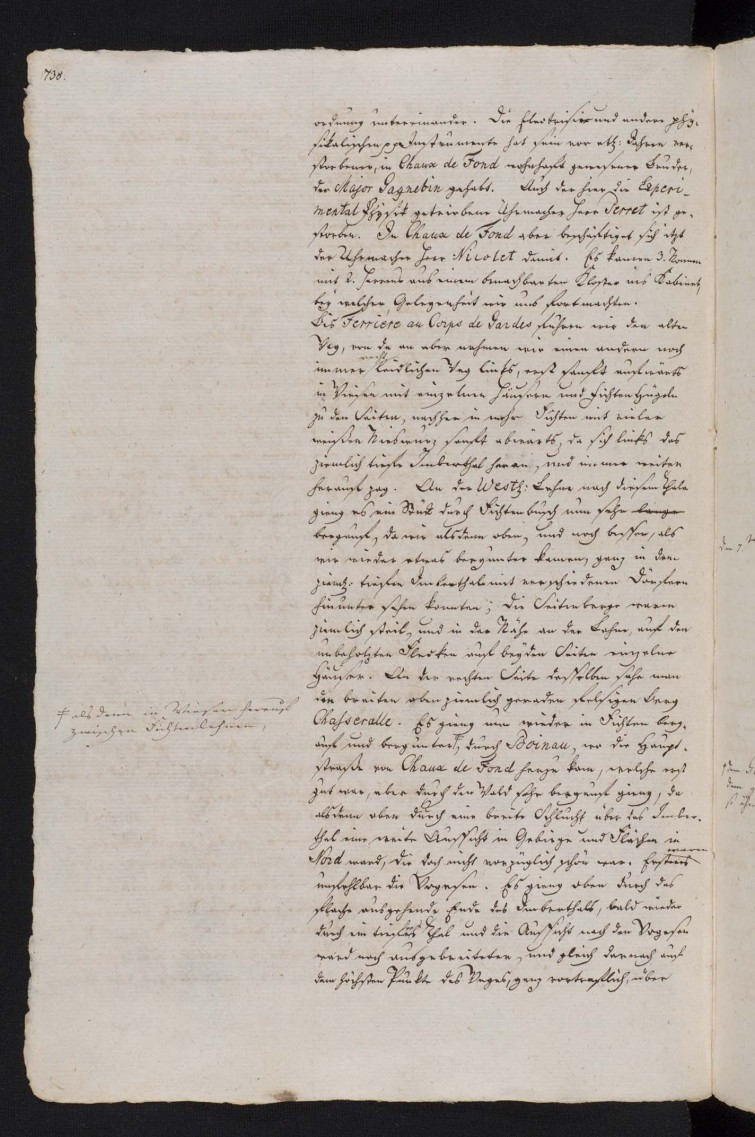 738.
ordnung untereinander. Die Electrisir und andere phy-
sikalischen Instrumente hat sein vor etl: Jahren ver-
storbener, in Chaux de Fond wohnhaft gewesener Bruder,
der Major Gagnebin gehabt. Auch der hier die Experi-
mental Physik getriebene Uhrmacher Herr Perret ist ge-
storben. In Chaux de Fond aber beschäftiget sich itzt
der Uhrmacher Herr Nicolet damit. Es kamen 3. Nonnen
mit 2. Herrens aus einem benachbarten Kloster ins Kabinet,
bey welcher Gelegenheit wir uns fortmachten.
Bis Ferriére au Corps de Gardes fuhren wir den alten
Weg, von da an aber nahmen wir einen andern noch
immer recht leidlichen Weg links, erst sanft aufwärts
in Wiesen mit einzelnen Häusern und Fichten Hügeln
zu den Seiten, nachher in mehr Fichten mit vieler
weißen Nieswurz sanft abwärts, da sich links das
ziemlich tiefe Imberthal heran, und immer weiter
herauf zog. An der Westl: Lehne nach diesem Thale
gieng es ein Stück durch Fichtenbusch nun sehr lange
bergauf, da wir alsdenn oben, und noch besser, als
wir wieder etwas bergunter kamen, ganz in dem
ziemt: tiefen Imberthale mit verschiedenen Dörfern
hinunter sehen konnten; die Seitenberge waren
ziemlich steil, und in der Nähe an der Lehne, auf den
unbeholzten Flecken auf beyden Seiten einzelne
Häuser. An der rechten Seite desselben sahe man
den breiten oben ziemlich geraden felsigen Berg
Chasseralle. Es gieng nun wieder in Fichten berg-
auf und bergunter, † durch Boinau, wo die Haupt-
straße von Chaux de Fond herzu kam, welche erst
gut war, aber durch den Wald sehr bergauf gieng, da
alsdenn oben durch eine breite Schlucht über das Imber-
thal eine weite Aussicht in Gebirge und Flächen in
Nord ward, die doch nicht vorzüglich schön war. Ersteres waren
unfehlbar die Vogesen. Es gieng oben durch das
flache ausgehende Ende des Imberthals, bald wieder
durch ein tiefes Thal und die Aussicht nach den Vogesen
ward noch ausgebreiteter, und gleich darnach auf
dem höchsten Punkte des Weges, ganz vortreflich, über
† als denn in Wiesen herauf
zwischen Fichtenlehnen,
den 7.